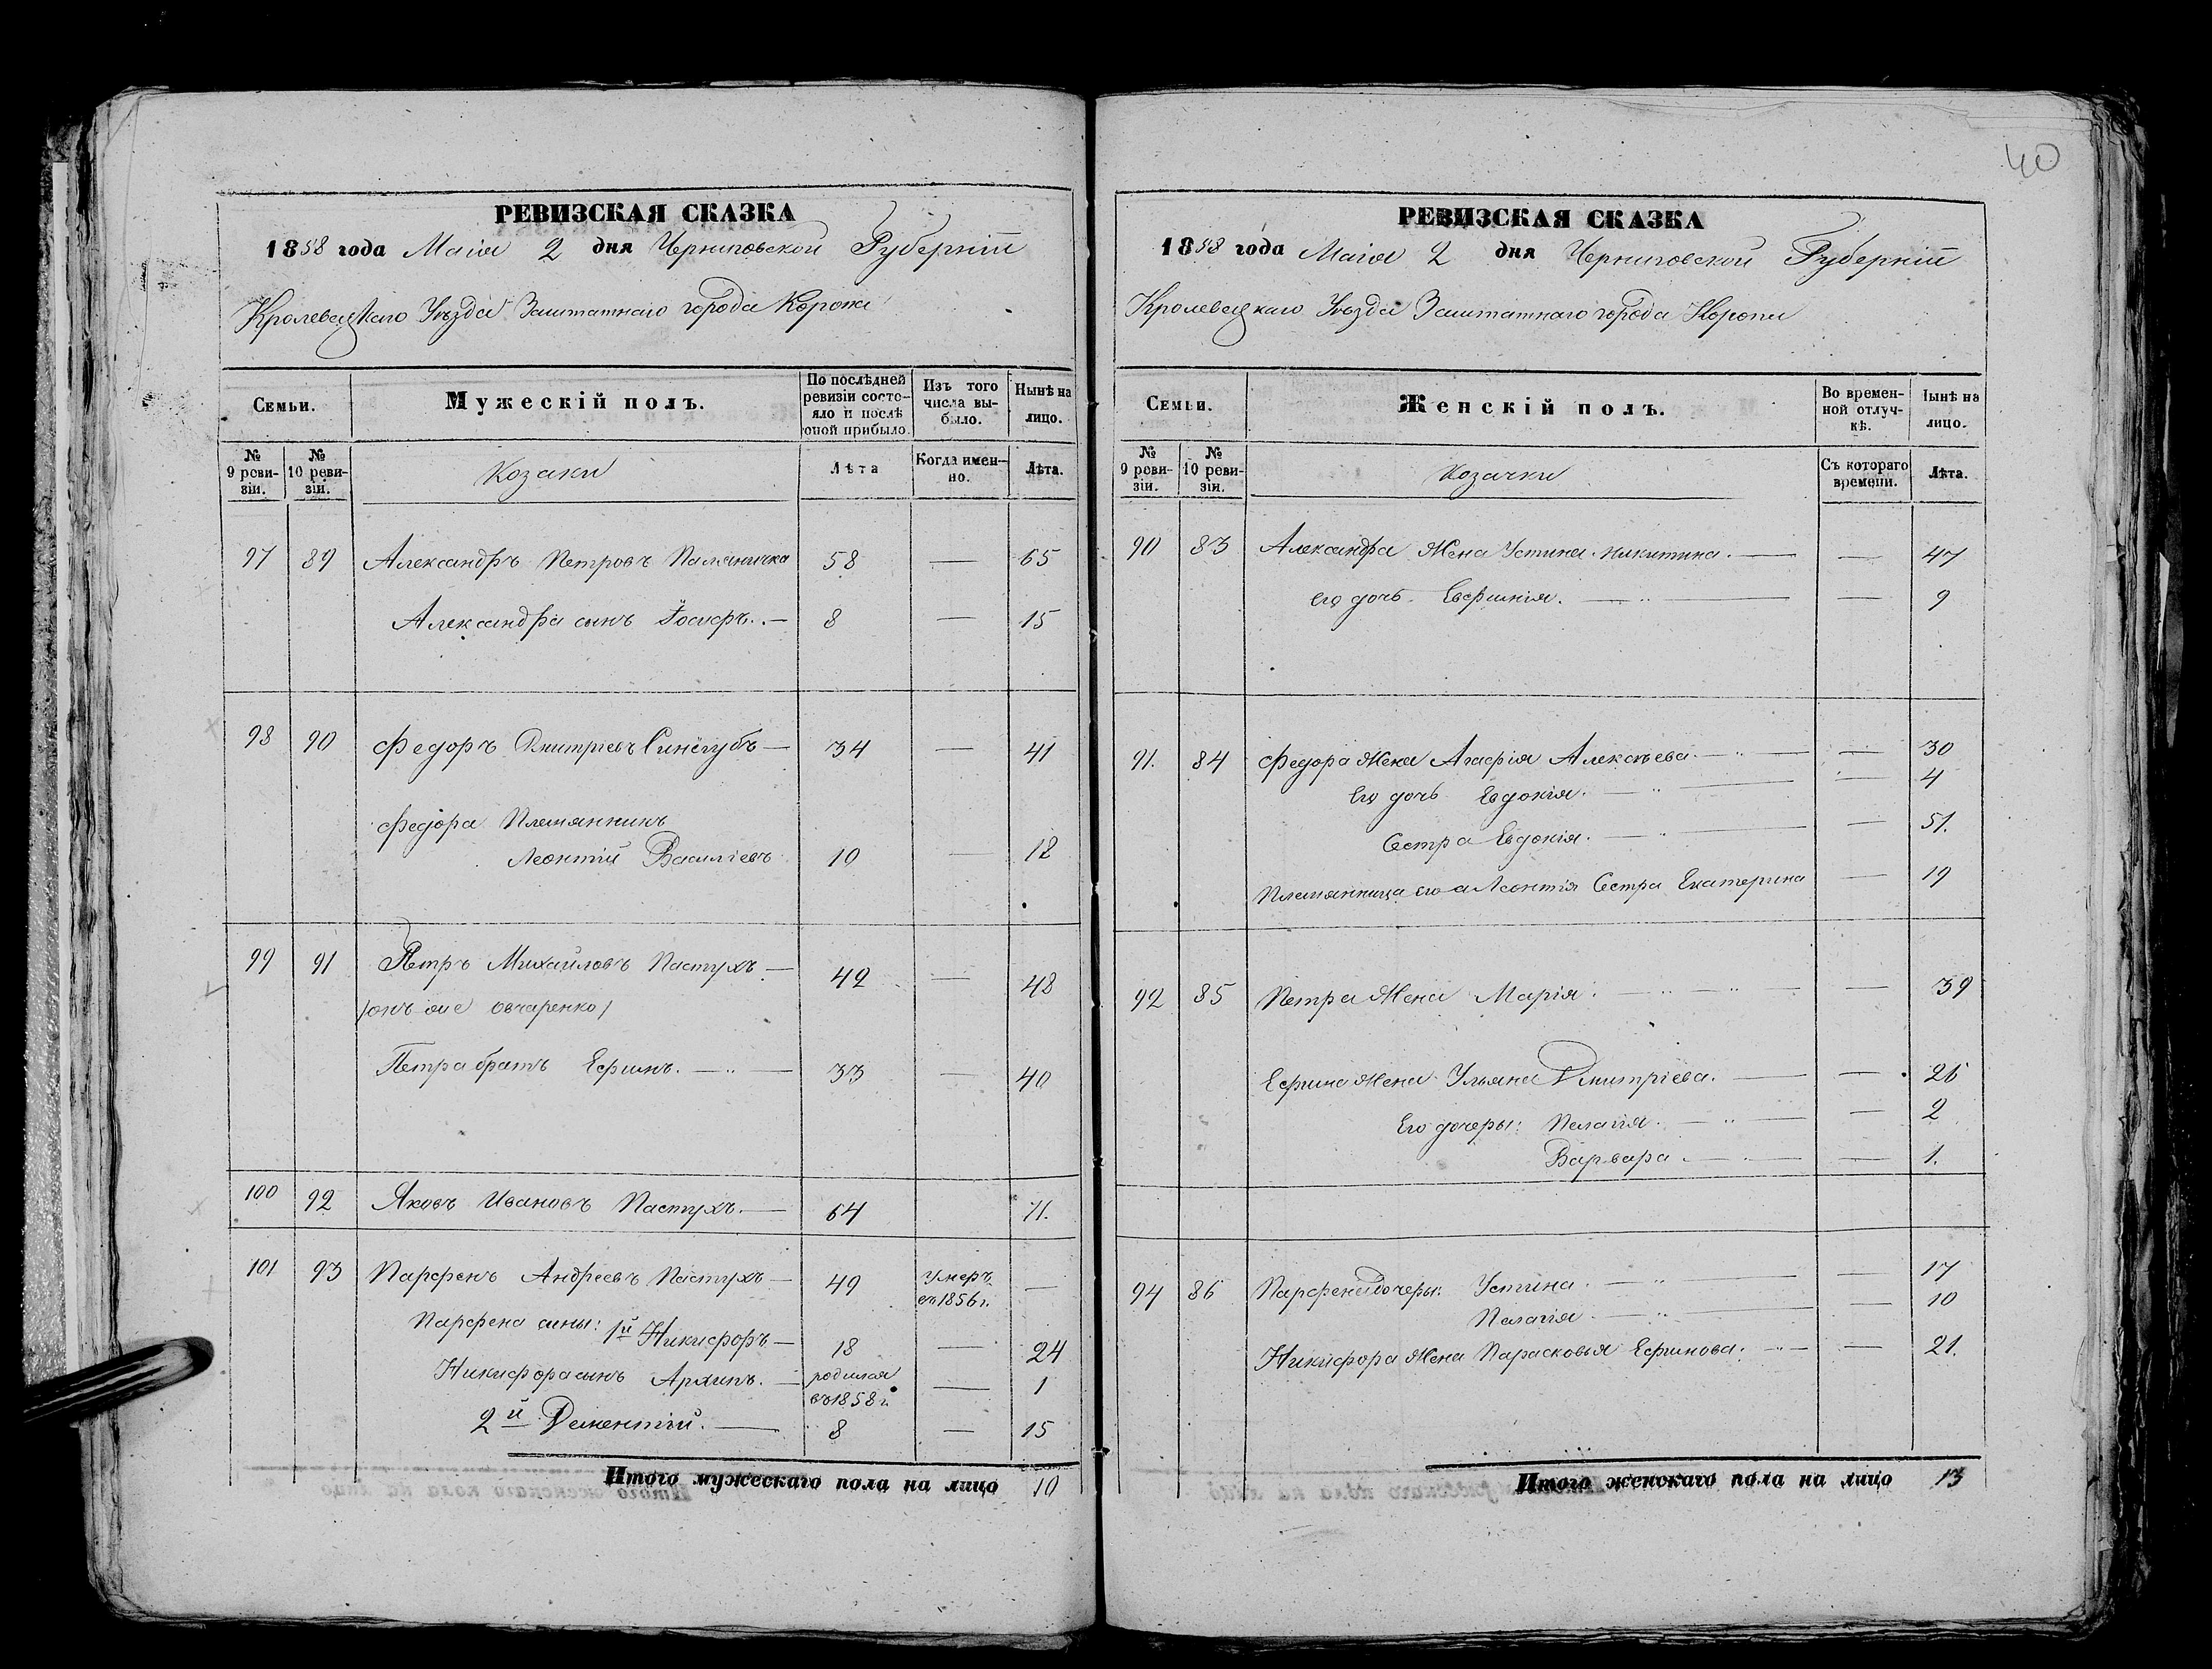 40
РЕВИЗСКАЯ СКАЗКА
1858 года Маія 2 дня Черниговской Губерніи
Кролевецкаго Уѣзда Заштатнаго города Коропа
Семьи.
Мужескій полъ.
По послѣдней ревизіи состояло и послѣ оной прибыло.
Изъ того числа выбыло.
Нынѣ на лицо.
№ 9 ревизіи.
№ 10 ревизіи.
Козаки
Лѣта
Когда именно.
Лѣта.
97 89 Александръ Петровъ Паляничка 58 — 65
Александра сынъ Іосифъ. — 8 — 15
98 90 Федоръ Дмитріевъ Синегубъ — 34 — 41
Федора Племянникъ
Леонтій Василіевъ 10 — 12
99 91 Петръ Михайловъ Пастухъ — 42 — 48
/онъ же Овчаренко/
Петра братъ Ефимъ. — 33 — 40
100 92 Яковъ Ивановъ Пастухъ. — 64 71.
101 93 Парфенъ Андреевъ Пастухъ — 49 Умеръ въ 1856 г. —
Парфена сыны: 1й Никифоръ — 18 — 24
Никифора сынъ Архипъ. — родился въ 1858 г. — 1
2й Дементій. — 8 — 15
Итого мужескаго пола на лицо 10
РЕВИЗСКАЯ СКАЗКА
1858 года Маія 2 дня Черниговской Губерніи
Кролевецкаго Уѣзда Заштатнаго города Коропа
Семьи.
Женскій полъ.
Во временной отлучкѣ.
Нынѣ на лицо.
№ 9 ревизіи.
№ 10 ревизіи.
Козачки
Съ котораго времени.
Лѣта.
90 83 Александра Жена Устина Никитина. — — 47
Его дочь Евфимія. — — 9
91. 84 Федора Жена Агафія Алексѣева — — 30
Его дочь Евдокія. — — 4
Сестра Евдокія. — — 51.
Племянница его а Леонтія Сестра Екатерина — 19
92 85 Петра Жена Марія. — — 39
Ефима Жена Ульяна Дмитріева. — — 26
Его дочеры: Пелагія. — — 2
Варвара. — — 1.
94 86 Парфена дочеры: Устина. — — 17
Пелагія. — — 10
Никифора Жена Парасковья Ефимова. — — 21.
Итого женскаго пола на лицо 13